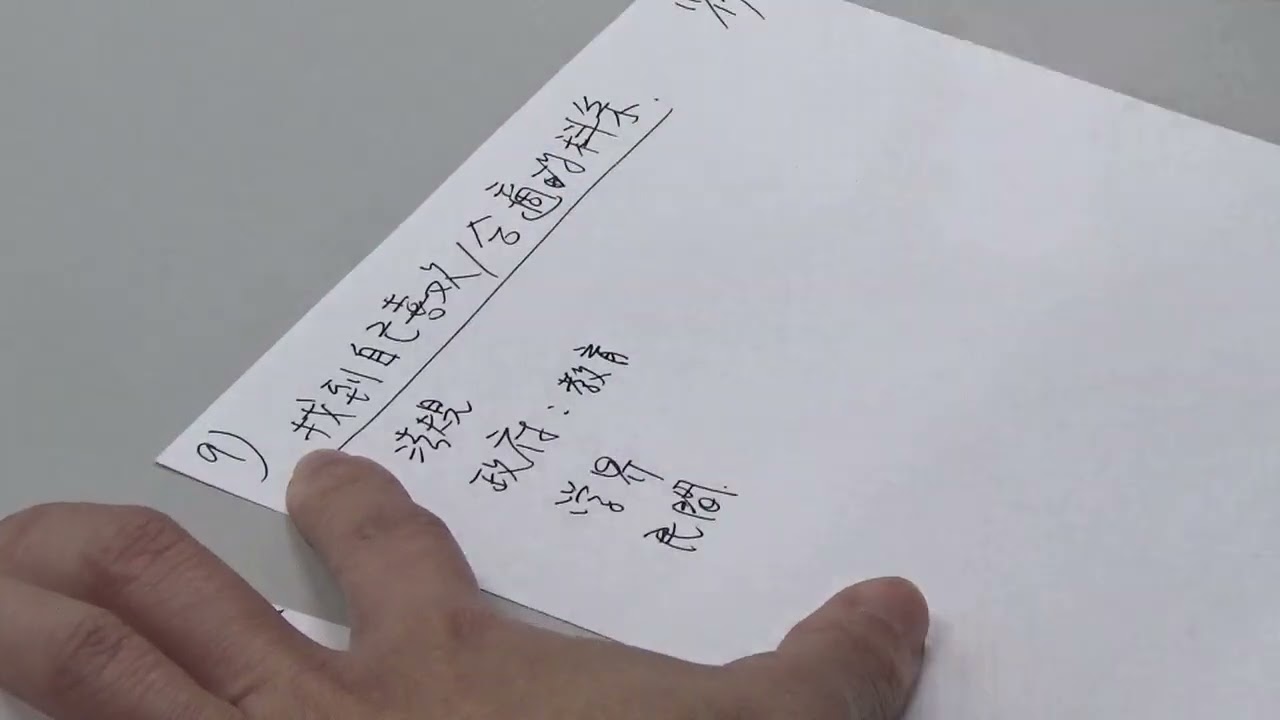 9) 找到自己喜欢/合適的科系.
法規
政府:教育
学界
民間.